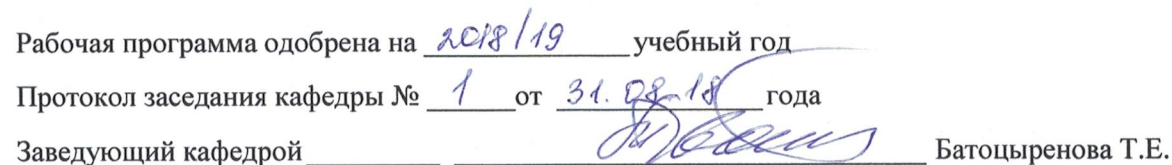 Рабочая программа одобрена на 2018/19 учебный год
Протокол заседания кафедры № 1 от 31.08.18 года
Заведующий кафедрой Батоцыренова Т.Е.